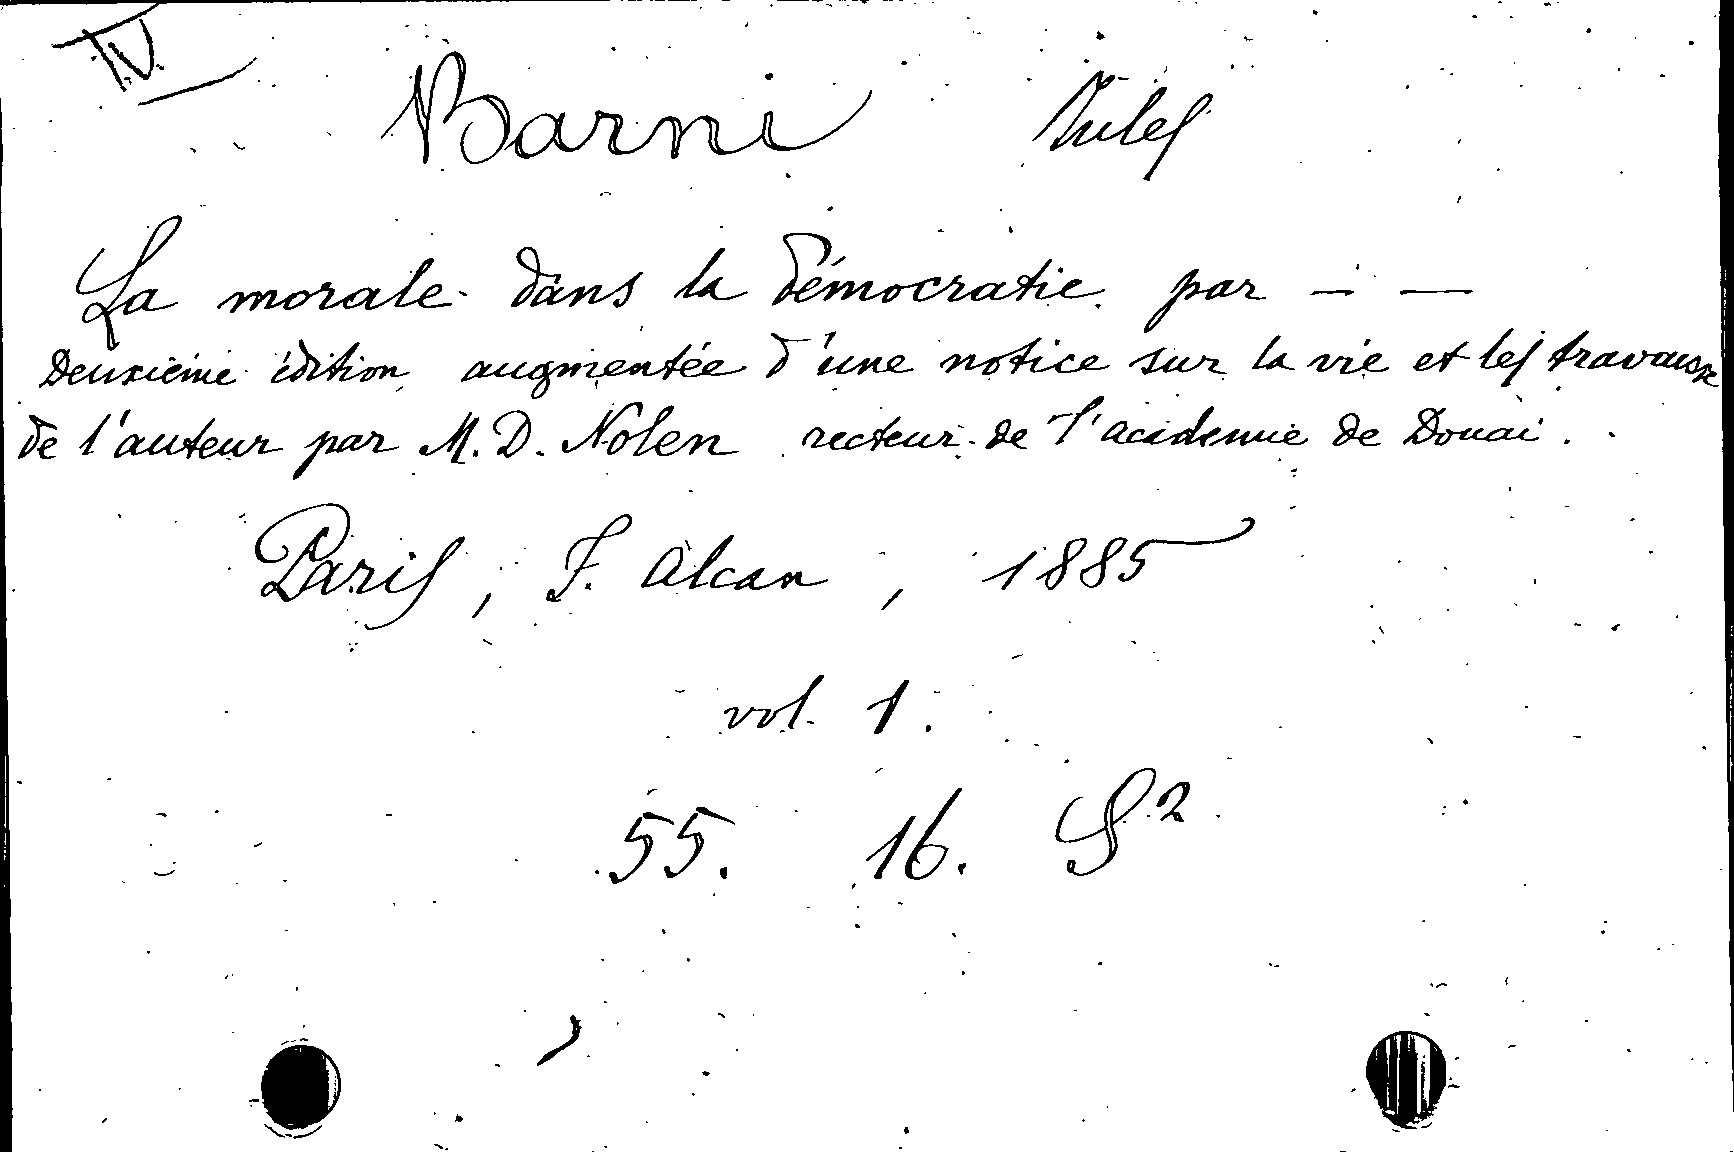 IV
Barni Jules
La morale dans la démocratie par — —
Deuxième édition augmentée d'une notice sur la vie et les travaux
de l'auteur par M. D. Nolen recteur de l'academie de Douai.
Paris, F. Alcan, 1885
vol. 1.
55. 16. S²